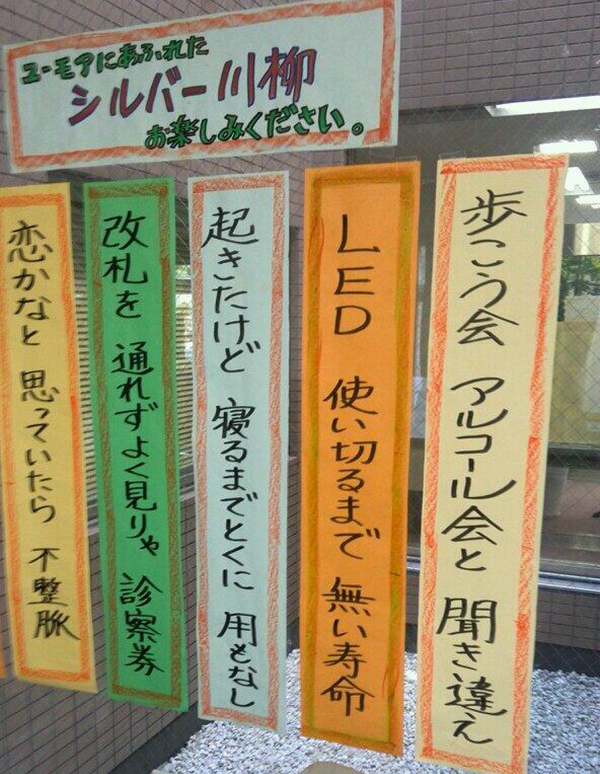 ユーモアにあふれた
シルバー川柳
お楽しみください。
歩こう会 アルコール会と 聞き違え
LED 使い切るまで 無い寿命
起きたけど 寝るまでとくに 用もなし
改札を 通れずよく見りゃ 診察券
恋かなと 思っていたら 不整脈